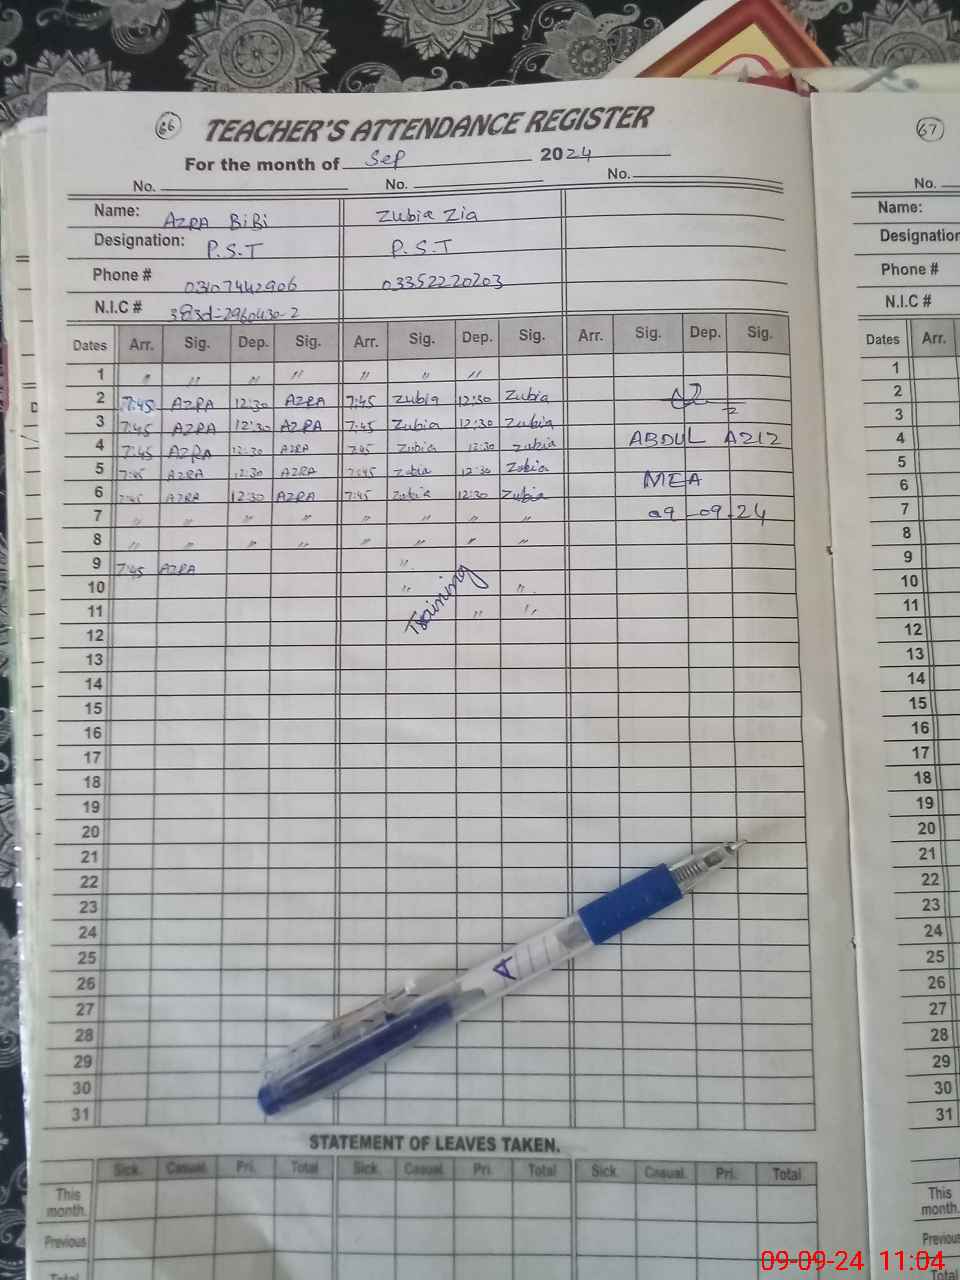 66 TEACHER'S ATTENDANCE REGISTER 67
For the month of Sep 2024
No. No. No. No.
Name: AZRA BiBi Zubia Zia Name:
Designation: P.S.T P.S.T Designation
Phone # 03107442906 03352220203 Phone #
N.I.C # N.I.C #
Dates Arr. Sig. Dep. Sig. Arr. Sig. Dep. Sig. Arr. Sig. Dep. Sig. Dates Arr.
1 " " " " " " " 1
2 7:45 AZRA 12:30 AZRA 7:45 Zubia 12:30 Zubia 2
3 7:45 AZRA 12:30 AZRA 7:45 Zubia 12:30 Zubia 3
4 7:45 AZRA 12:30 AZRA 7:45 Zubia 12:30 Zubia ABDUL AZIZ 4
5 7:45 AZRA 12:30 AZRA 7:45 Zubia 12:30 Zubia 5
6 7:45 AZRA 12:30 AZRA 7:45 Zubia 12:30 Zubia MEA 6
7 " " " " " " " " 09-09-24 7
8 " " " " " " " " 8
9 7:45 AZRA " 9
10 " Training " 10
11 " " 11
12 12
13 13
14 14
15 15
16 16
17 17
18 18
19 19
20 20
21 21
22 22
23 23
24 24
25 25
26 26
27 27
28 28
29 29
30 30
31 31
STATEMENT OF LEAVES TAKEN.
Sick. Casual. Pri. Total Sick. Casual. Pri. Total Sick. Casual. Pri. Total
This month. This month.
Previous Previous
Total Total
09-09-24 11:04